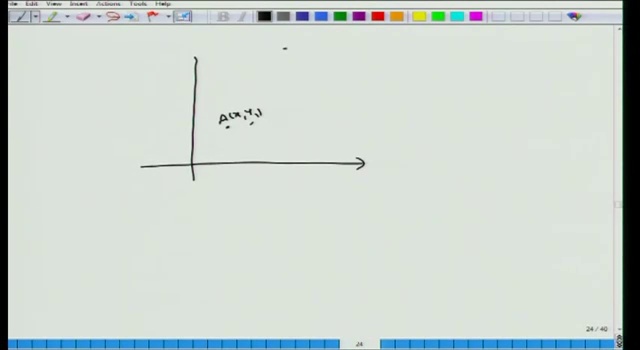 File Edit View Insert Actions Tools Help
B I
A(x₁, y₁)
24 / 40
24